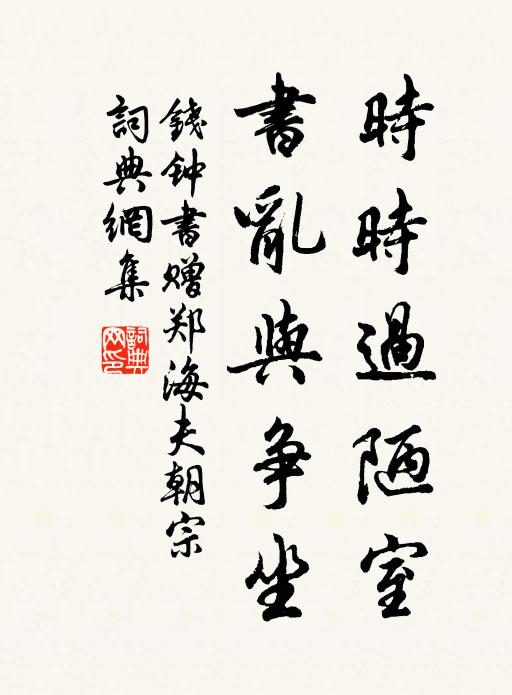 時時過陋室
書亂與争坐
錢钟書赠郑海夫朝宗
詞典網集
詞典
网印